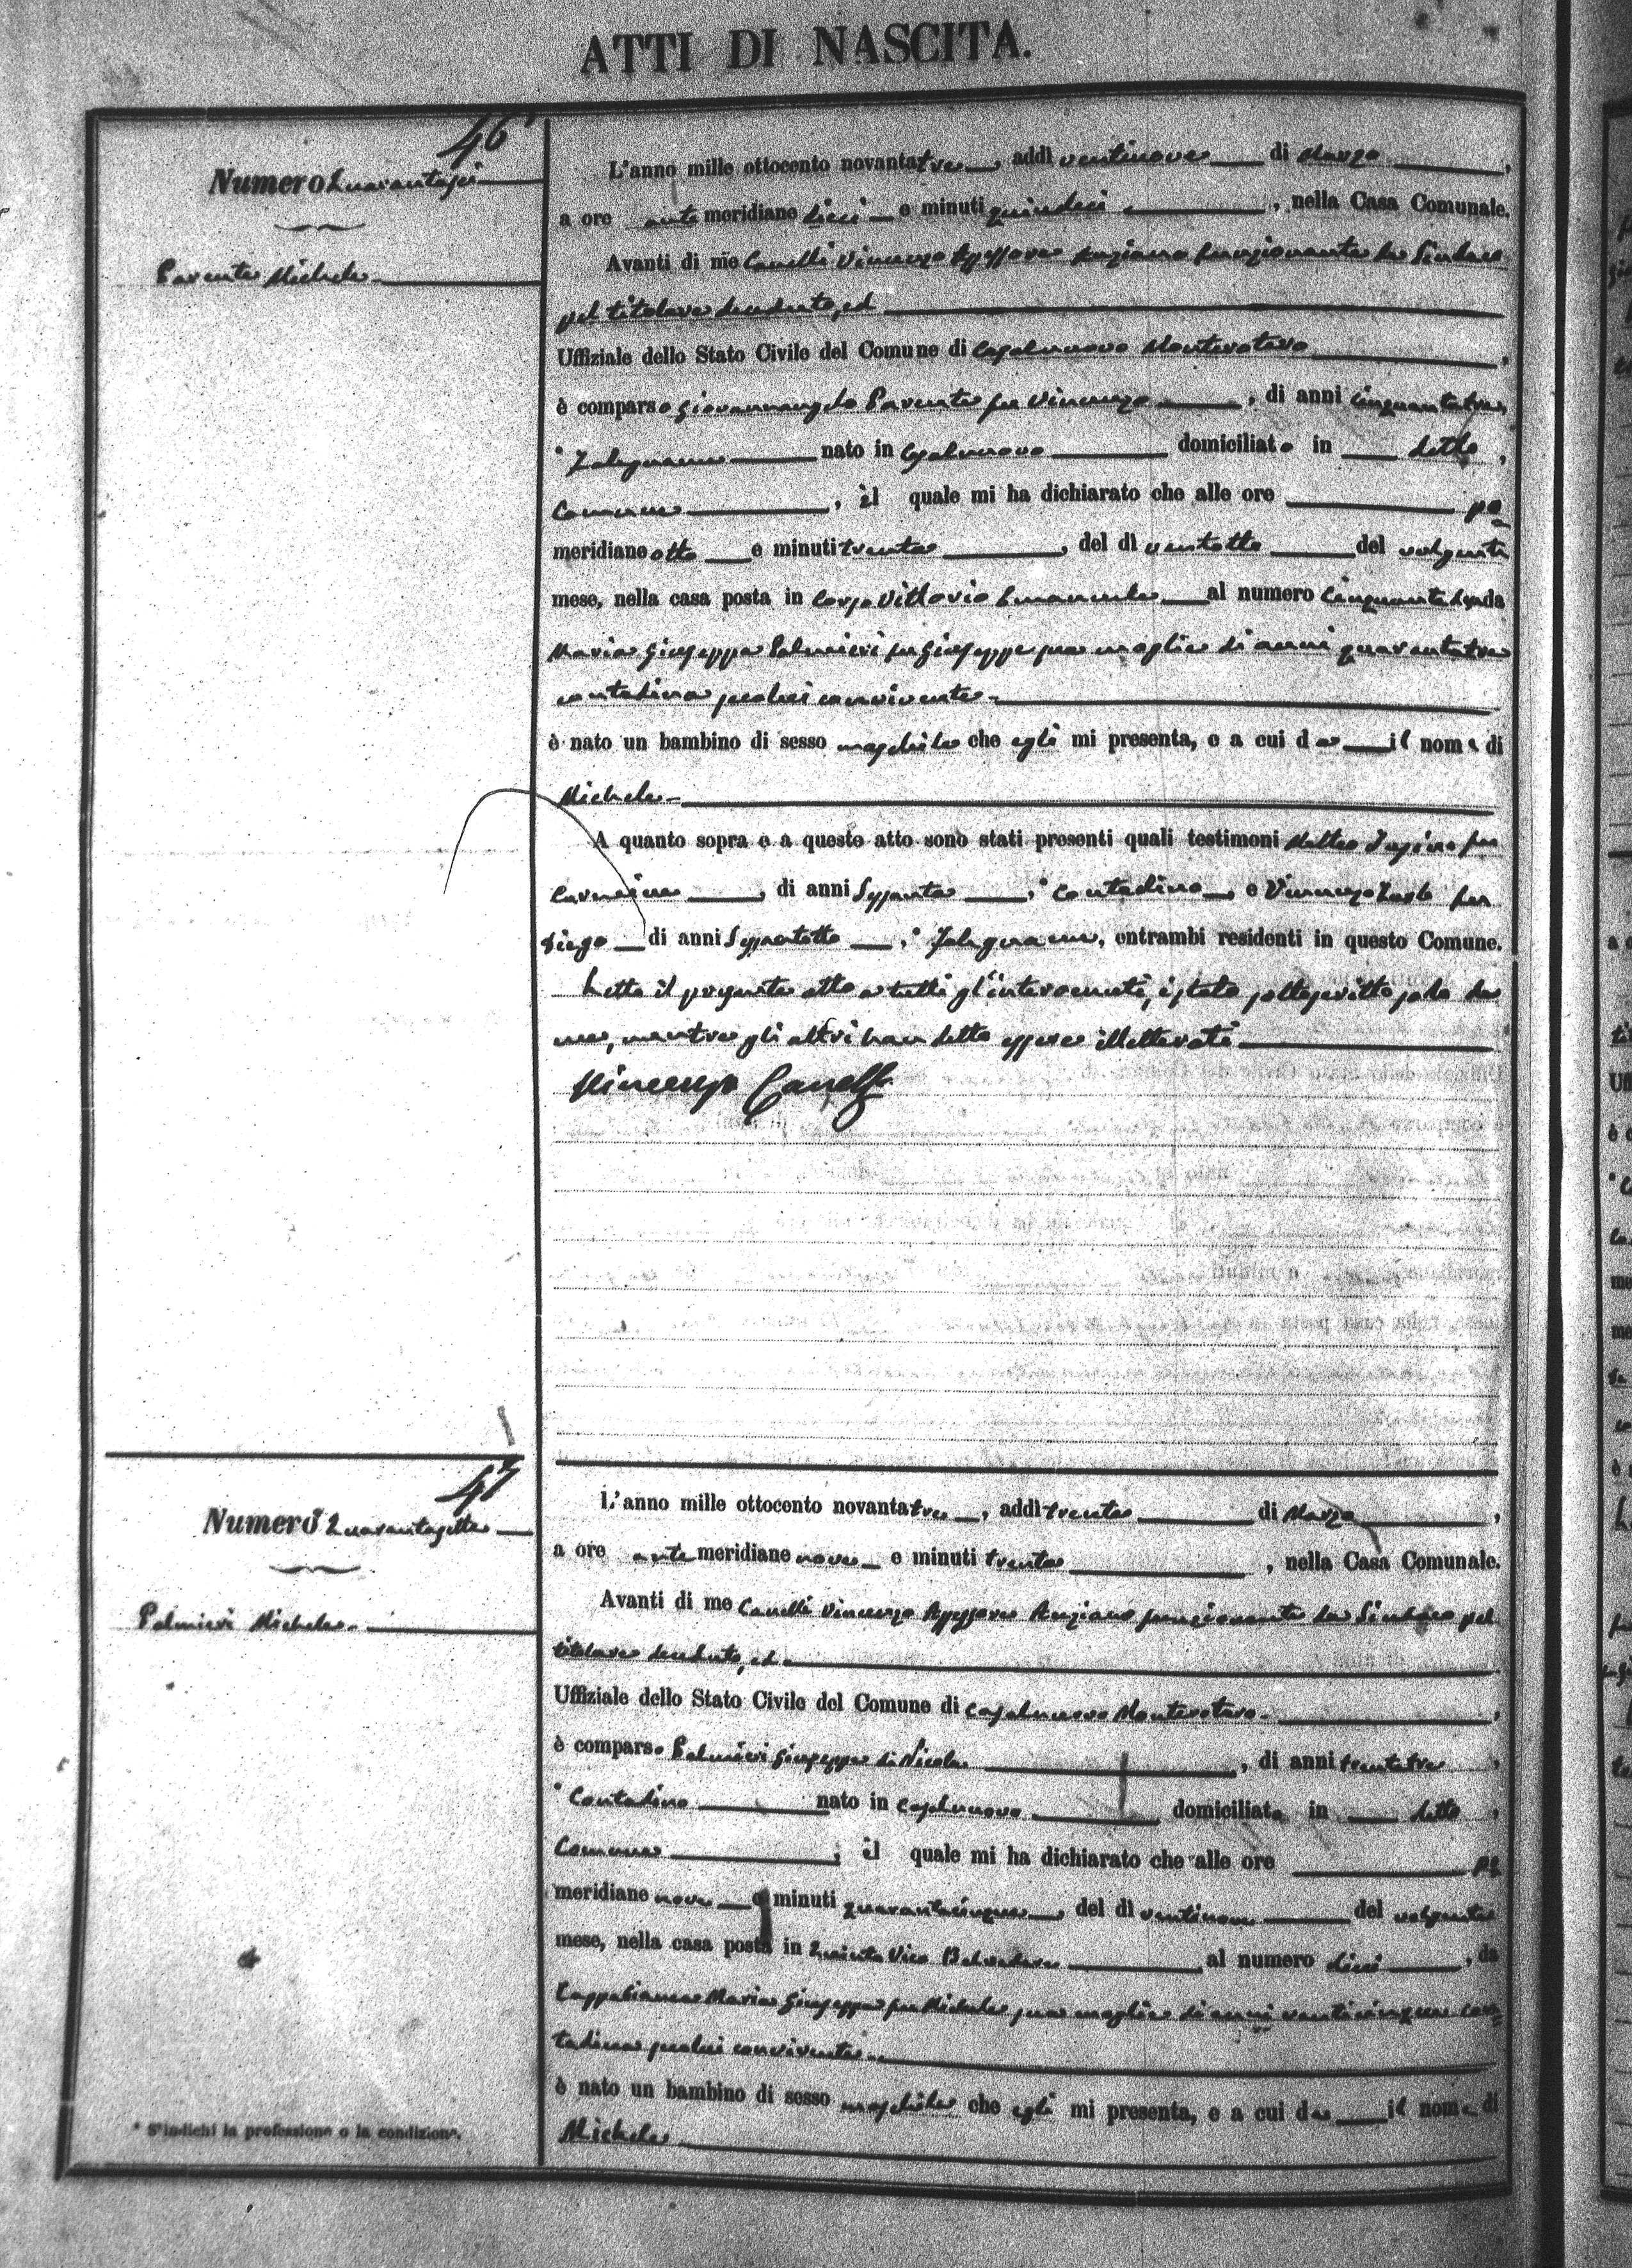 ATTI DI NASCITA.
46
Numero Quarantasei
Parente Michele
L'anno mille ottocento novantatre, addì ventinove di Marzo,
a ore antemeridiane dieci e minuti quindici, nella Casa Comunale.
Avanti di me Canelli Vincenzo Assessore Anziano funzionante da Sindaco
pel titolare scaduto, ed
Uffiziale dello Stato Civile del Comune di Casalnuovo Monterotaro,
è comparso Giovannangelo Parente fu Vincenzo, di anni cinquantatre,
* Falegname nato in Casalnuovo domiciliato in detto,
Comune, il quale mi ha dichiarato che alle ore po
meridiane otto e minuti trenta, del dì ventotto del volgente
mese, nella casa posta in Corso Vittorio Emanuele al numero da
Maria Giuseppa Palmieri fu Giuseppe sua moglie di anni quarantatre
contadina seco lui convivente
è nato un bambino di sesso maschile che egli mi presenta, e a cui da il nome di
Michele
A quanto sopra e a questo atto sono stati presenti quali testimoni Matteo fu
Carmine, di anni Sessanta, * Contadino, e Vincenzo fu
Diego di anni Sessantotto, * Falegname, entrambi residenti in questo Comune.
Letto il presente atto a tutti gl'intervenuti, è stato sottoscritto solo da
me, mentre gli altri han detto essere illetterati
Vincenzo Canelli
47
Numero Quarantasette
Palmieri Michele
L'anno mille ottocento novantatre, addì trenta di Marzo,
a ore antemeridiane nove e minuti trenta, nella Casa Comunale.
Avanti di me Canelli Vincenzo Assessore Anziano funzionante da Sindaco pel
titolare scaduto, ed
Uffiziale dello Stato Civile del Comune di Casalnuovo Monterotaro,
è comparso Palmieri Giuseppe di Nicola, di anni trentatre,
* Contadino nato in Casalnuovo domiciliato in detto,
Comune, il quale mi ha dichiarato che alle ore po
meridiane nove e minuti quarantacinque, del dì ventinove del volgente
mese, nella casa posta in Quinto Vico Belvedere al numero dieci, da
Cappabianca Maria Giuseppa fu Michele sua moglie di anni venticinque con=
tadina seco lui convivente
è nato un bambino di sesso maschile che egli mi presenta, e a cui da il nome di
Michele
* S'indichi la professione o la condizione.